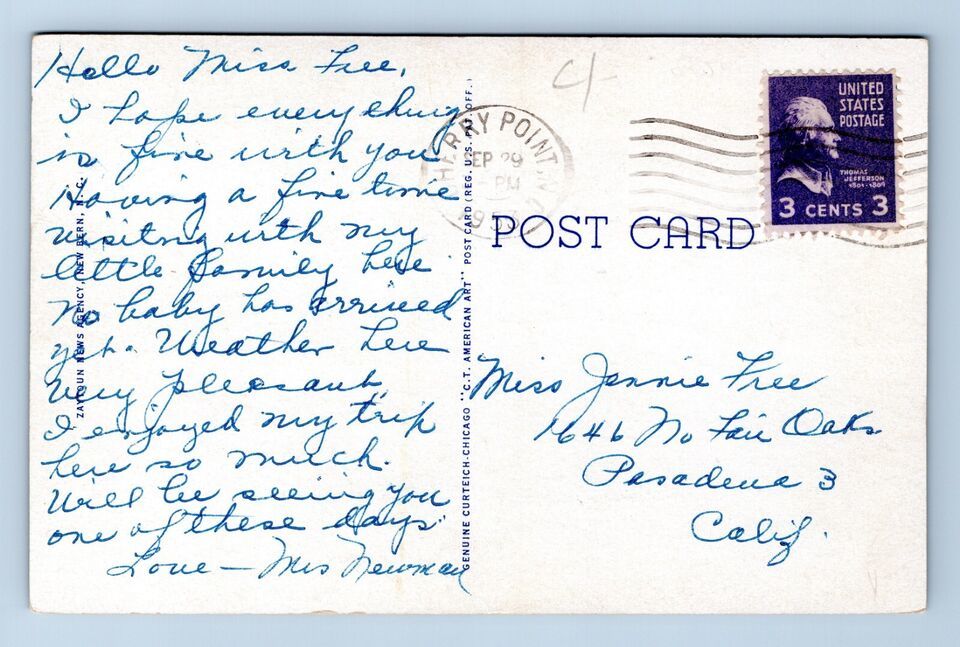 Hello Miss Free,
I hope everything
is fine with you
Having a fine time
visiting with my
little family here
No baby has arrived
yet. Weather here
very pleasant
I enjoyed my trip
here so much.
Will be seeing you
one of these days.
Love — Mrs Newman
ZAYTOUN NEWS AGENCY, NEW BERN, N. C.
GENUINE CURTEICH-CHICAGO "C.T. AMERICAN ART" POST CARD (REG. U.S. PAT. OFF.)
4
CHERRY POINT, N.C.
SEP 29
PM
UNITED
STATES
POSTAGE
THOMAS
JEFFERSON
1801-1809
3 CENTS 3
POST CARD
Miss Jennie Free
1646 No Fair Oaks
Pasadena 3
Calif.